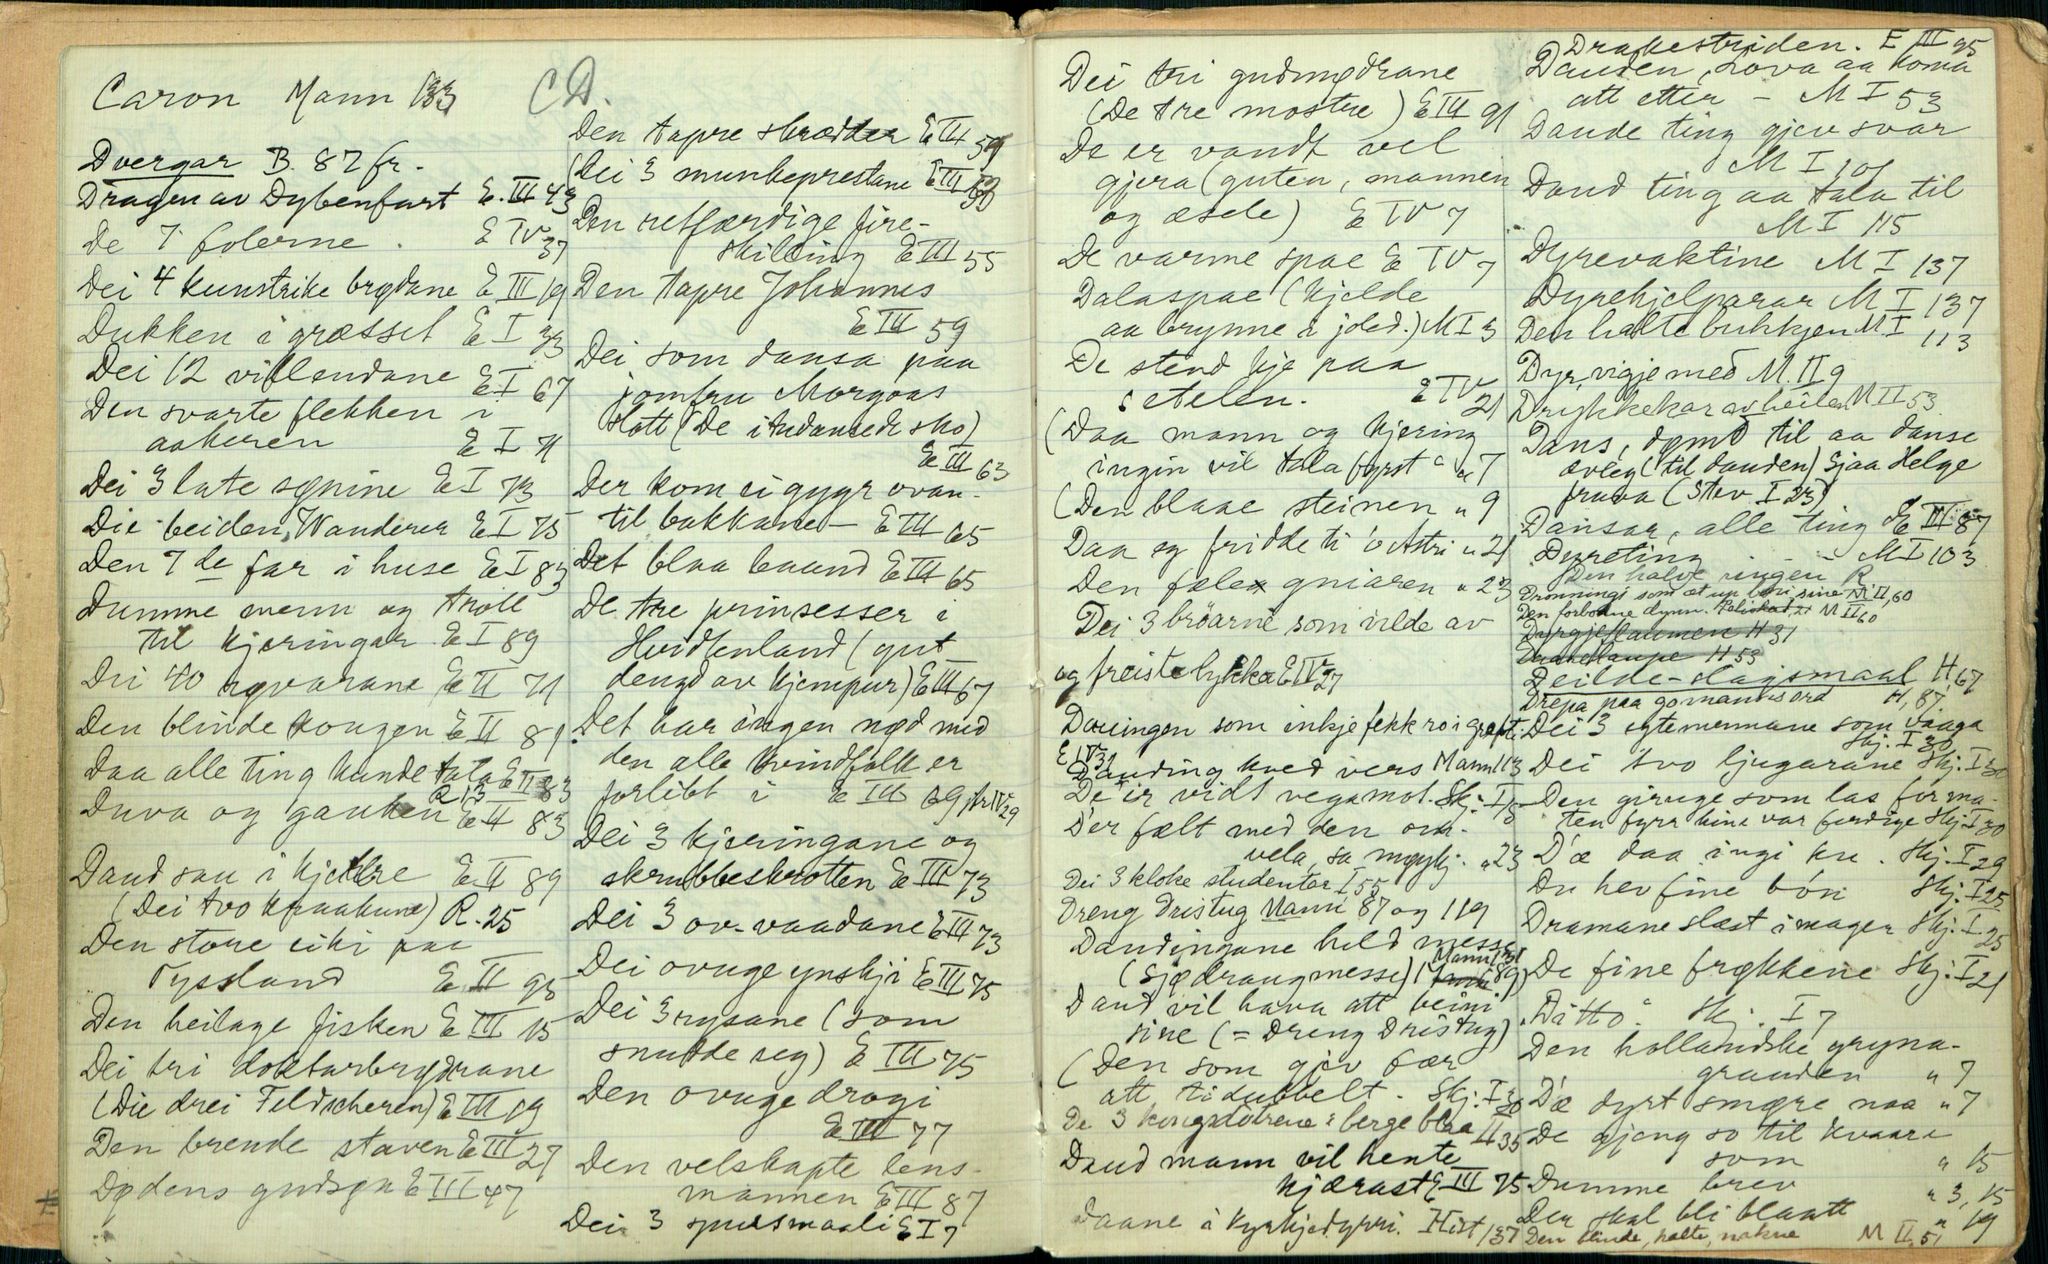 Caron Mann 133
C D.
Dvergar B. 87 fr.
Dragen av Dybenfart E. III 43
De 7 folerne. E IV 37
Dei 4 kunstrike brødane E III 19
Dukken i græsset E I 33
Dei 12 villendane E I 67
Den svarte flekken i
aakeren E I 71
Dei 3 late sønine E I 73
Die beiden Wanderer E I 75
Den 7de far i huse E I 83
Dumme menn og troll
til kjeringar E I 89
Dei 40 røvarane E II 71
Den blinde kongen E II 81
Daa alle ting kunde tala E II 83
R 13
Duva og gauken E II 83
Daud sau i kjellre E II 89
(Dei tvo kraakune) R. 25
Den store eiki paa
Tyssland E II 93
Den heilage fisken E III 15
Dei tri doktarbrødrane
(Die drei Feldscheren) E III 19
Den brende staven E III 27
Dødens gudsøn E III 47
Den tapre skrædder E III 59
(Dei 3 munkeprestane E III 53
Den retfærdige fire-
skilling E III 55
Den tapre Johannes
E III 59
Dei som dansa paa
jomfru Morgoas
slott (De itudansede sko)
E III 63
Der kom ei gygr ovan-
til bakkane — E III 65
Det blaa baand E III 65
De tre prinsesser i
Hvidtenland (gut
dengd av kjempur) E III 67
Det har ingen nød med
den alle kvindfolk er
forlibt i E III 69 jfr IV 29
Dei 3 kjeringane og
skrubbeskrotten E III 73
Dei 3 ov-vaadane E III 73
Dei ovuge ynskji E III 75
Dei 3 rysane (som
snudde seg) E III 75
Den ovuge drogi
E III 77
Den velskapte lens-
mannen E III 87
Dei 3 spursmaali E I 7
Dei tri gudmødrane
(De tre mostre) E III 91
De er vandt vel
gjera (guten, mannen
og æsele) E IV 7
De varme spae E IV 7
Dalaspae (kjelde
aa brynne i joled.) M I 3
De stend kje paa
setelen. E IV 21
(Daa mann og kjering
ingin vil tala fyrst " " 7
(Den blaae steinen " 9
Daa eg fridde ti 'o Astri " 21
Den fæle gniaren " 23
Dei 3 brøarne som vilde av
og freista lykka E IV 27
Dauingen som inkje fekk ro i grafti.
E IV 31
Dauding kved vers Mann 113
De er vidt vegamot. Skj. I 15
D'er fælt med den om-
vela, sa møykj. " 23
Dei 3 kloke studentar I 55
Dreng Dristug Mann 87 og 119
Daudingane held messe
(Sjødraugmesse) Mann 131
Daud vil hava att beini
sine (= Dreng Dristug)
(Den som gjev fær
att tidubbelt. Skj. I 30
De 3 kongsdøtrene i berge blaa II 35
Daud mann vil hente
kjærast E III 75
Daane i kyrkjedyri. Hist 137
Drakestriden. E III 95
Dauden, lova aa koma
att etter — M I 53
Daude ting gjev svar
M I 101
Daud ting aa tala til
M I 115
Dyrevaktine M I 137
Dyrehjelparar M I 137
Den halte bukkjen M I 113
Dyr, vigje med M. II 9
Drykkekar av heilen M II 53
Dans, dømd til aa danse
ævleg (til dauden) Sjaa Helge
frava (Stev I 23)
Dansar, alle ting E III 87
Dyreting — M I 103
Den halve ringen R
Dronningi som åt up ban sine M II, 60
Den forbodne dynn. M II 60
H 31
H 53
Deilde-slagsmaal H, 67
Drepa paa gomannsord H, 87.
Dei 3 egtemennane som vaaga
Skj. I 30
Dei tvo ljugarane Skj. I 30
Den giruge som las for ma-
ten fyrr hine var ferdige Skj. I 30
D'æ daa ingi ku. Skj. I 29
Du hev fine bón Skj. I 25
Dramane slæst i magen Skj. I 25
De fine frøkkene Skj. I 21
"Ditto" Skj. I 7
Den hollandske gryna-
grauden " 7
D'æ dyrt smøre naa " 7
De gjeng so til kvaare
som " 15
Dumme brev " 3, 15
Der skal bli blautt " 19
Den blinde, halte, nakne M II, 51